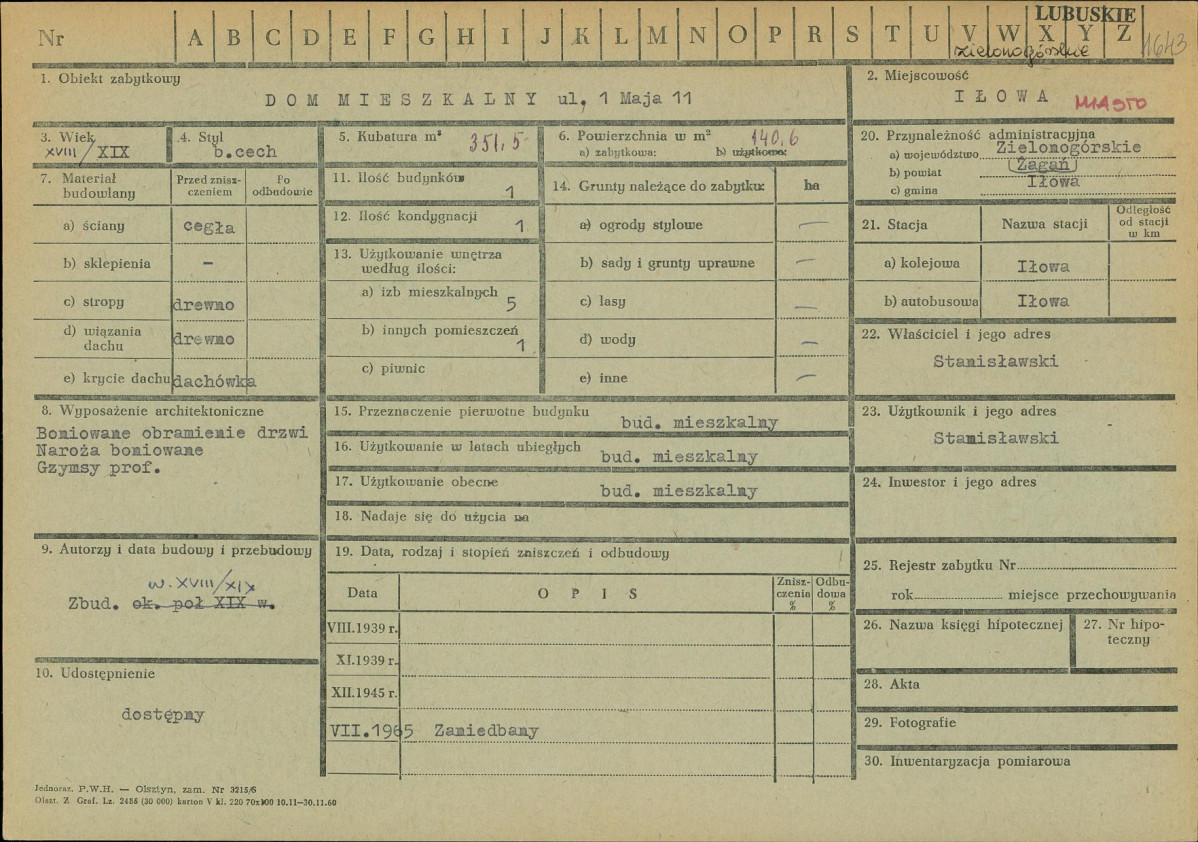 Nr A B C D E F G H I J K L M N O P R S T U V W X Y Z
LUBUSKIE
zielonogórskie
1643
1. Obiekt zabytkowy
DOM MIESZKALNY ul. 1 Maja 11
2. Miejscowość
IŁOWA MIASTO
3. Wiek
XVIII/XIX
4. Styl
b.cech
5. Kubatura m³ 351,5
6. Powierzchnia w m² 140,6
a) zabytkowa: b) użytkowa:
7. Materiał budowlany
Przed zniszczeniem
Po odbudowie
a) ściany cegła
b) sklepienia –
c) stropy drewno
d) wiązania dachu drewno
e) krycie dachu dachówka
11. Ilość budynków 1
12. Ilość kondygnacji 1
13. Użytkowanie wnętrza
według ilości:
a) izb mieszkalnych 5
b) innych pomieszczeń 1
c) piwnic
14. Grunty należące do zabytku: ha
a) ogrody stylowe —
b) sady i grunty uprawne —
c) lasy —
d) wody —
e) inne —
20. Przynależność administracyjna
a) województwo Zielonogórskie
b) powiat Żagań
c) gmina Iłowa
21. Stacja Nazwa stacji
Odległość
od stacji
w km
a) kolejowa Iłowa
b) autobusowa Iłowa
22. Właściciel i jego adres
Stanisławski
23. Użytkownik i jego adres
Stanisławski
24. Inwestor i jego adres
25. Rejestr zabytku Nr
rok miejsce przechowywania
26. Nazwa księgi hipotecznej
27. Nr hipo-
teczny
28. Akta
29. Fotografie
30. Inwentaryzacja pomiarowa
8. Wyposażenie architektoniczne
Boniowane obramienie drzwi
Naroża boniowane
Gzymsy prof.
9. Autorzy i data budowy i przebudowy
w. XVIII/XIX
Zbud. ok. poł XIX w.
10. Udostępnienie
dostępny
15. Przeznaczenie pierwotne budynku bud. mieszkalny
16. Użytkowanie w latach ubiegłych bud. mieszkalny
17. Użytkowanie obecne bud. mieszkalny
18. Nadaje się do użycia na
19. Data, rodzaj i stopień zniszczeń i odbudowy
Data OPIS
Znisz-
czenia
%
Odbu-
dowa
%
VIII.1939 r.
XI.1939 r.
XII.1945 r.
VII.1965 Zaniedbany
Jednoraz. P.W.H. — Olsztyn, zam. Nr 3215/6
Olszt. Z. Graf. Lz. 2486 (30 000) karton V kl. 220 70x100 10.11—30.11.60